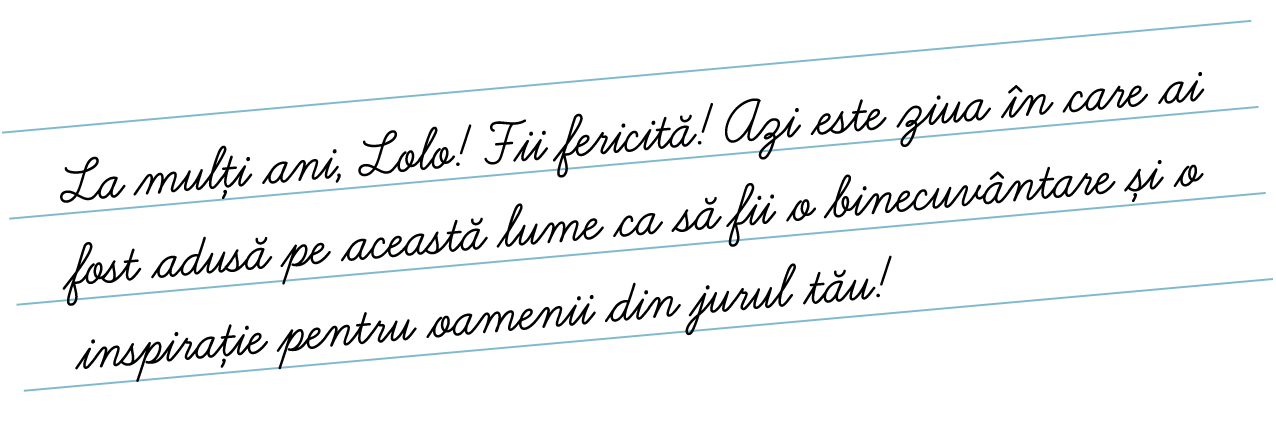 La mulți ani, Lolo! Fii fericită! Azi este ziua în care ai
fost adusă pe această lume ca să fii o binecuvântare și o
inspirație pentru oamenii din jurul tău!